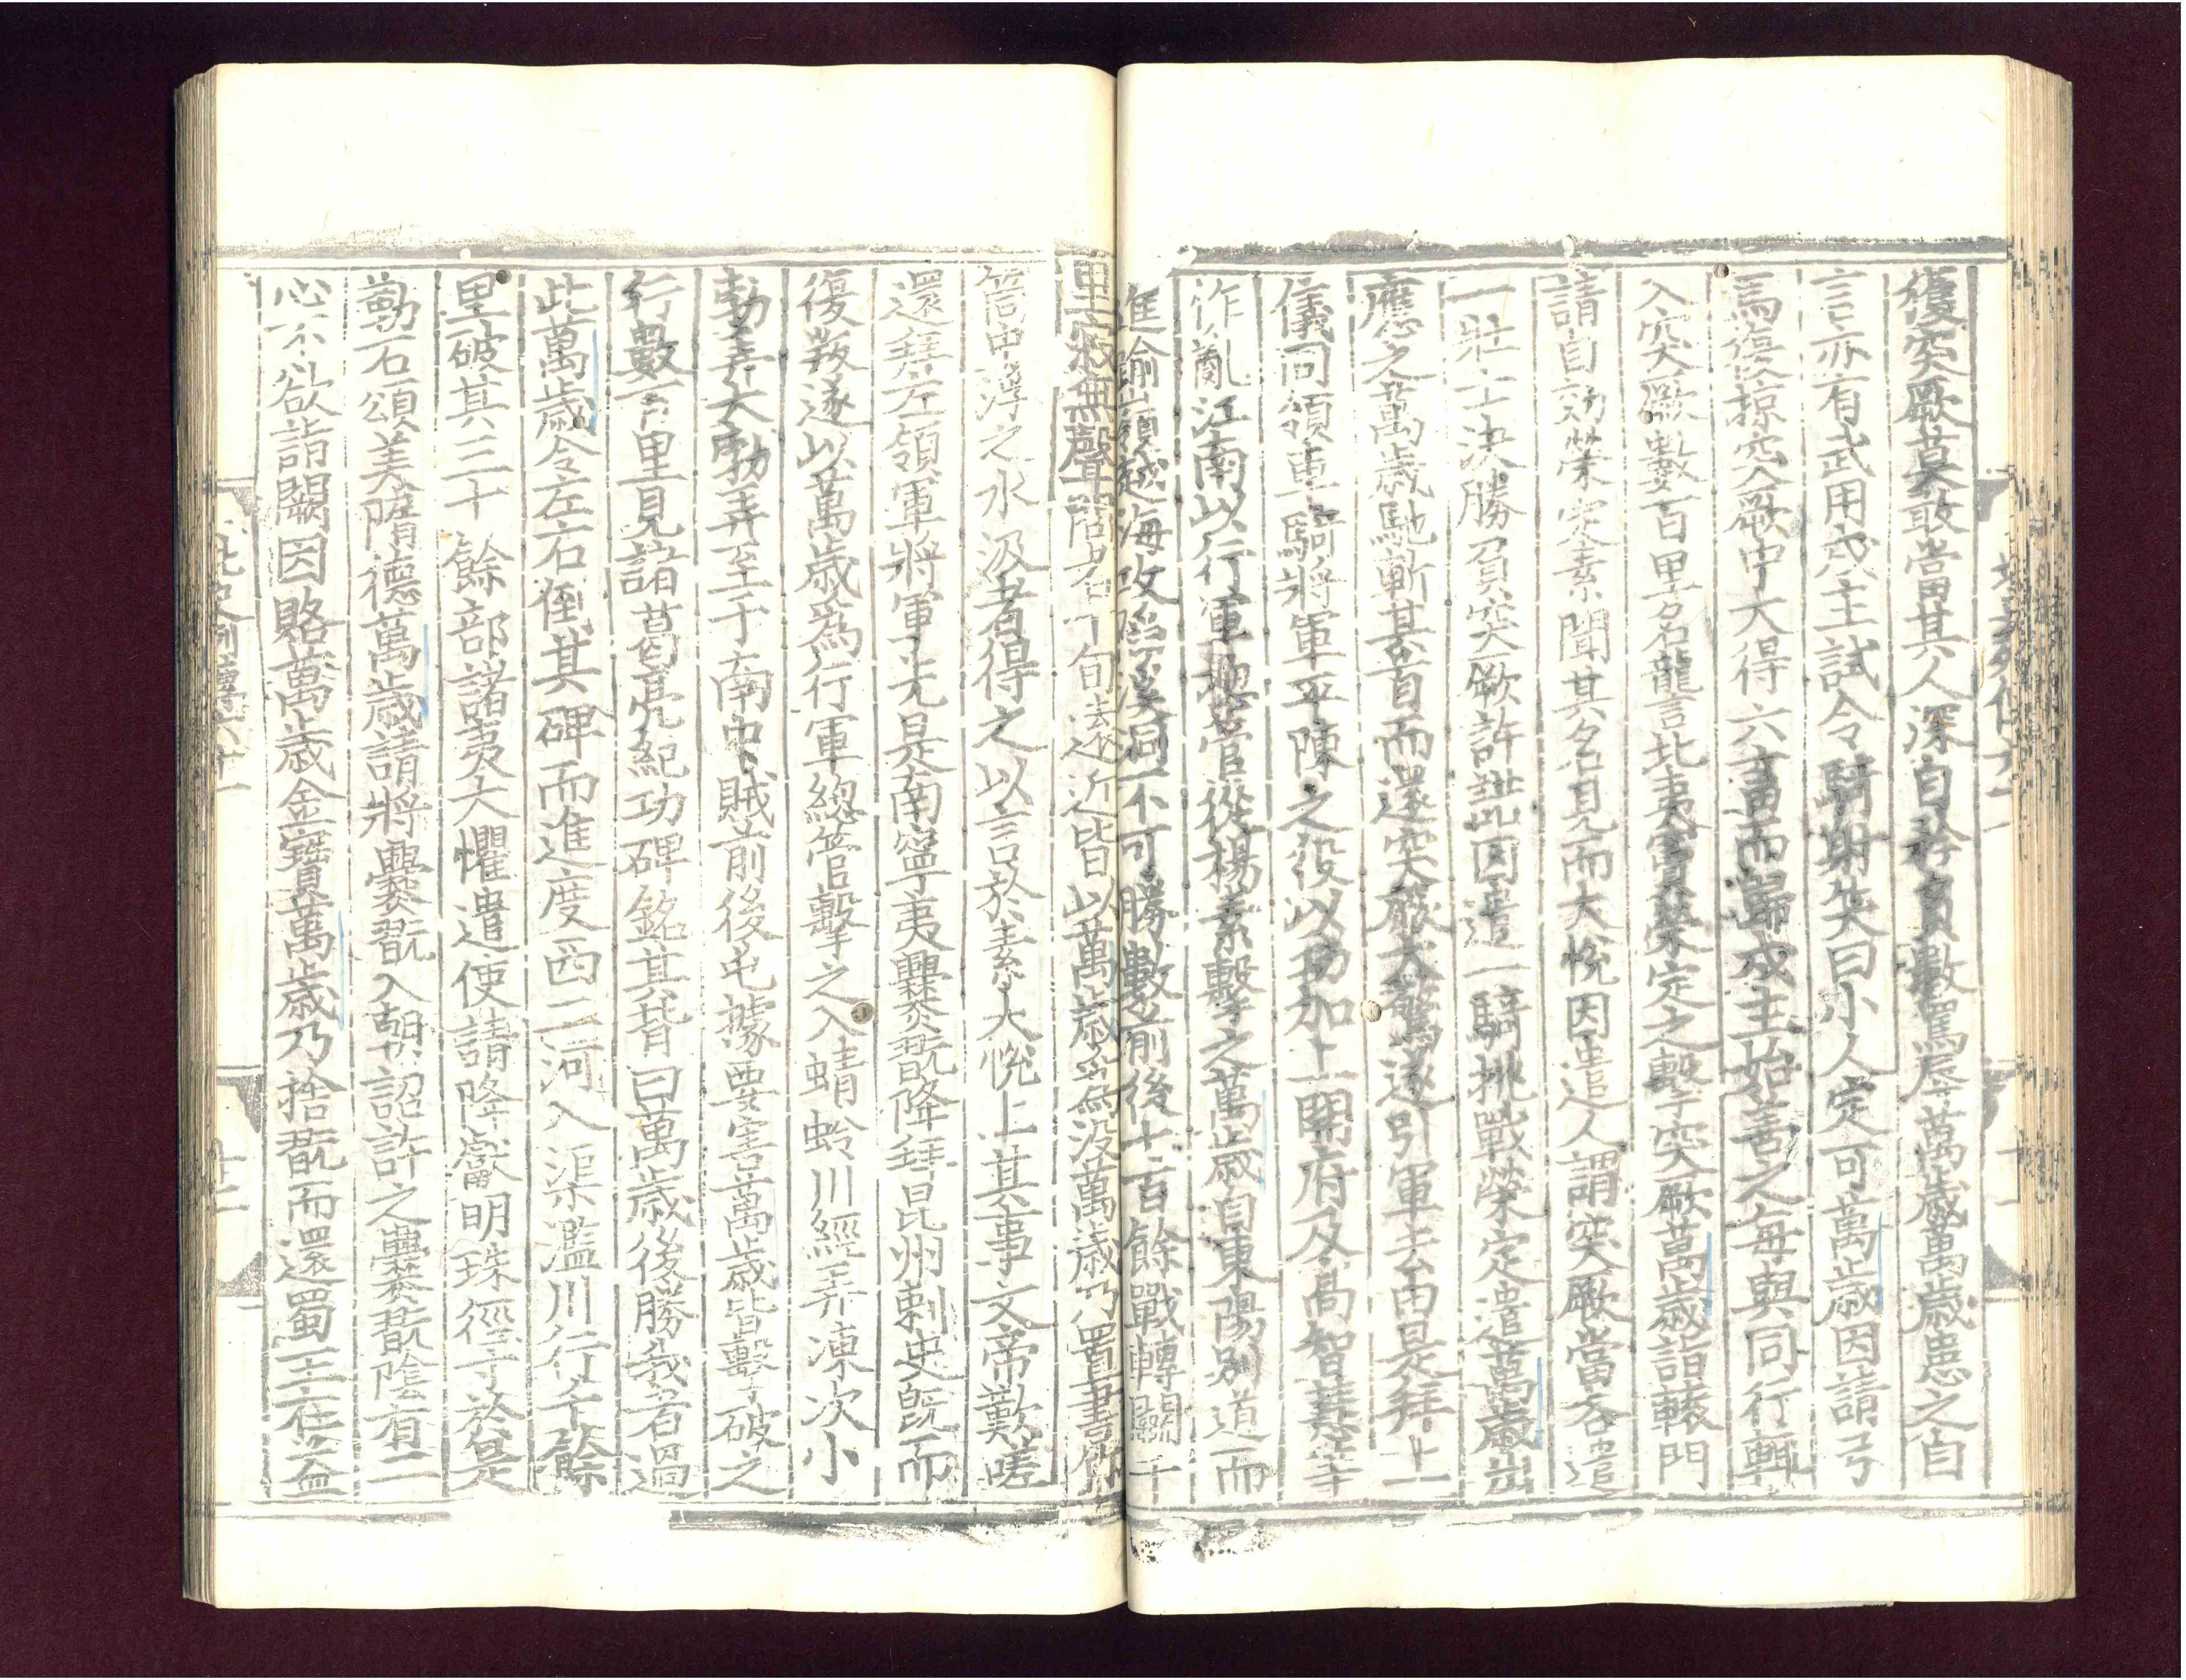 獲突厥莫敢當其人深自矜負數罵辱萬歲萬歲患之自
言亦有武用戍主試令騎射笑曰小人定可萬歲因請弓
馬復掠突厥中大得六畜而歸戍主始善之每與同行輒
入突厥數百里名讋北夷竇榮定之擊突厥萬歲詣轅門
請自効榮定素聞其名見而大悅因遣人謂突厥當各遣
一壯士決勝負突厥許諾因遣一騎挑戰榮定遣萬歲出
應之萬歲馳斬其首而還突厥大驚遂引軍去由是拜上
儀同領車騎將軍平陳之役以功加上開府及高智慧等
作亂江南以行軍總管從楊素擊之萬歲自東陽別道而
進踰嶺越海攻陷溪洞不可勝數前後七百餘戰轉鬭千
里寂無聲問者十旬遠近皆以萬歲爲沒萬歲乃置書
筒中浮之水汲者得之以言於素大悅上其事文帝歎嗟
還拜左領軍將軍先是南寧夷爨翫降拜昆州刺史既而
復叛遂以萬歲爲行軍總管擊之入蜻蛉川經弄凍次小
勃弄大勃弄至于南中賊前後屯據要害萬歲皆擊破之
行數百里見諸葛亮紀功碑銘其背曰萬歲後勝我者過
此萬歲令左右倒其碑而進度西二河入渠濫川行千餘
里破其三十餘部諸夷大懼遣使請降獻明珠徑寸於是
勒石頌美隋德萬歲請將爨翫入朝詔許之爨翫陰有二
心不欲詣闕因賂萬歲金寶萬歲乃捨翫而還蜀王在益
北史列傳六十一